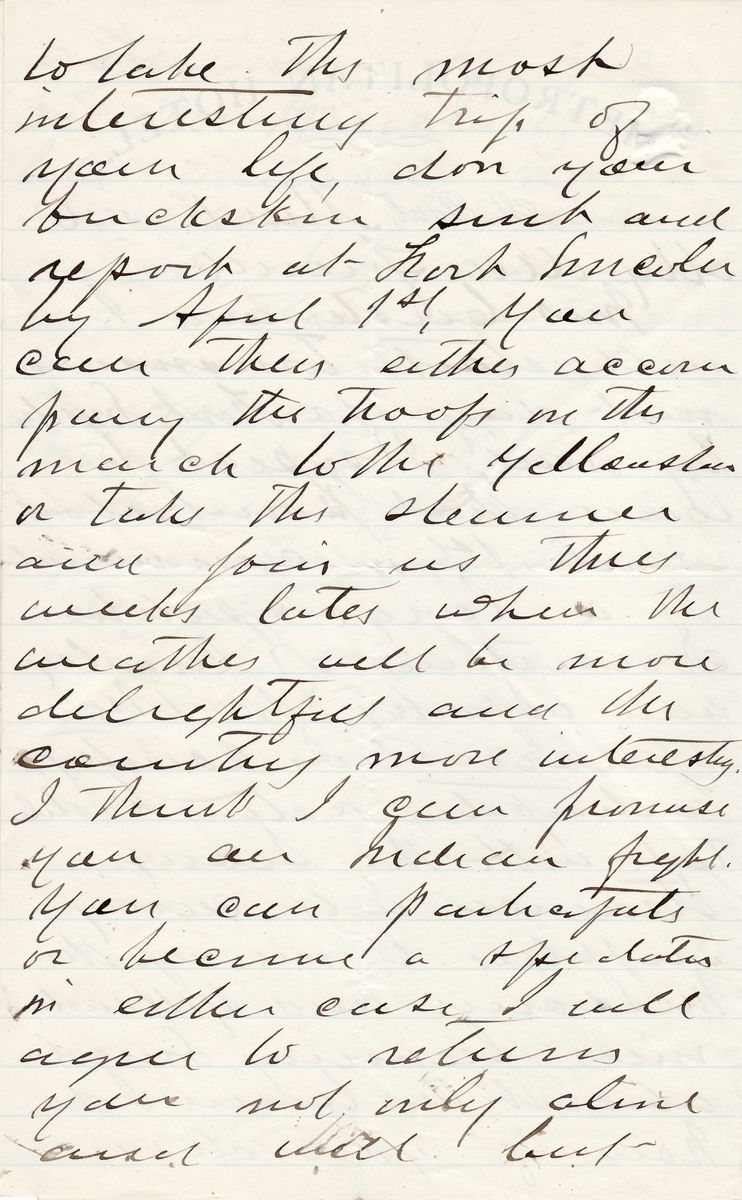 to take the most
interesting trip of
your life, don your
buckskin suit and
report at Fort Lincoln
by April 1st, You
can then either accom
pany the troops on the
march to the Yellowstone
or take the steamer
and join us three
weeks later when the
weather will be more
delightful and the
country more interesting.
I think I can promise
you an Indian fight.
You can participate
or become a spectator
in either case I will
agree to return
you not only alive
and well but